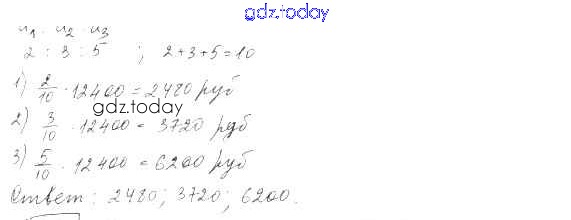 gdz.today
и₁ : и₂ : и₃
2 : 3 : 5 ; 2+3+5=10
1) 2/10 · 12400 = 2480 руб
gdz.today
2) 3/10 · 12400 = 3720 руб
3) 5/10 · 12400 = 6200 руб
Ответ: 2480; 3720; 6200.